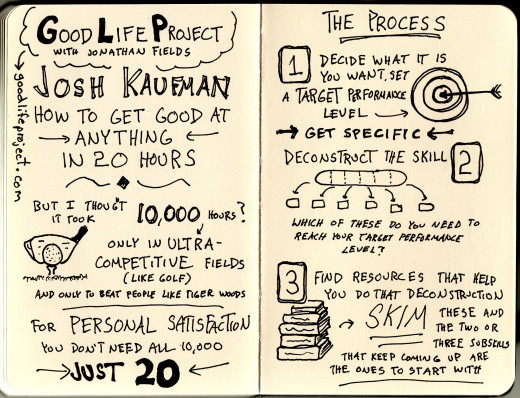 GOOD LIFE PROJECT
WITH JONATHAN FIELDS
goodlifeproject.com
JOSH KAUFMAN
HOW TO GET GOOD AT
ANYTHING
IN 20 HOURS
BUT I THOUGHT
IT TOOK
10,000 HOURS?
ONLY IN ULTRA-
COMPETITIVE FIELDS
(LIKE GOLF)
AND ONLY TO BEAT PEOPLE LIKE TIGER WOODS
FOR PERSONAL SATISFACTION
YOU DON'T NEED ALL 10,000
JUST 20
THE PROCESS
1 DECIDE WHAT IT IS
YOU WANT, SET
A TARGET PERFORMANCE
LEVEL
GET SPECIFIC
DECONSTRUCT THE SKILL 2
WHICH OF THESE DO YOU NEED TO
REACH YOUR TARGET PERFORMANCE
LEVEL?
3 FIND RESOURCES THAT HELP
YOU DO THAT DECONSTRUCTION
SKIM THESE AND
THE TWO OR
THREE SUBSKILLS
THAT KEEP COMING UP ARE
THE ONES TO START WITH